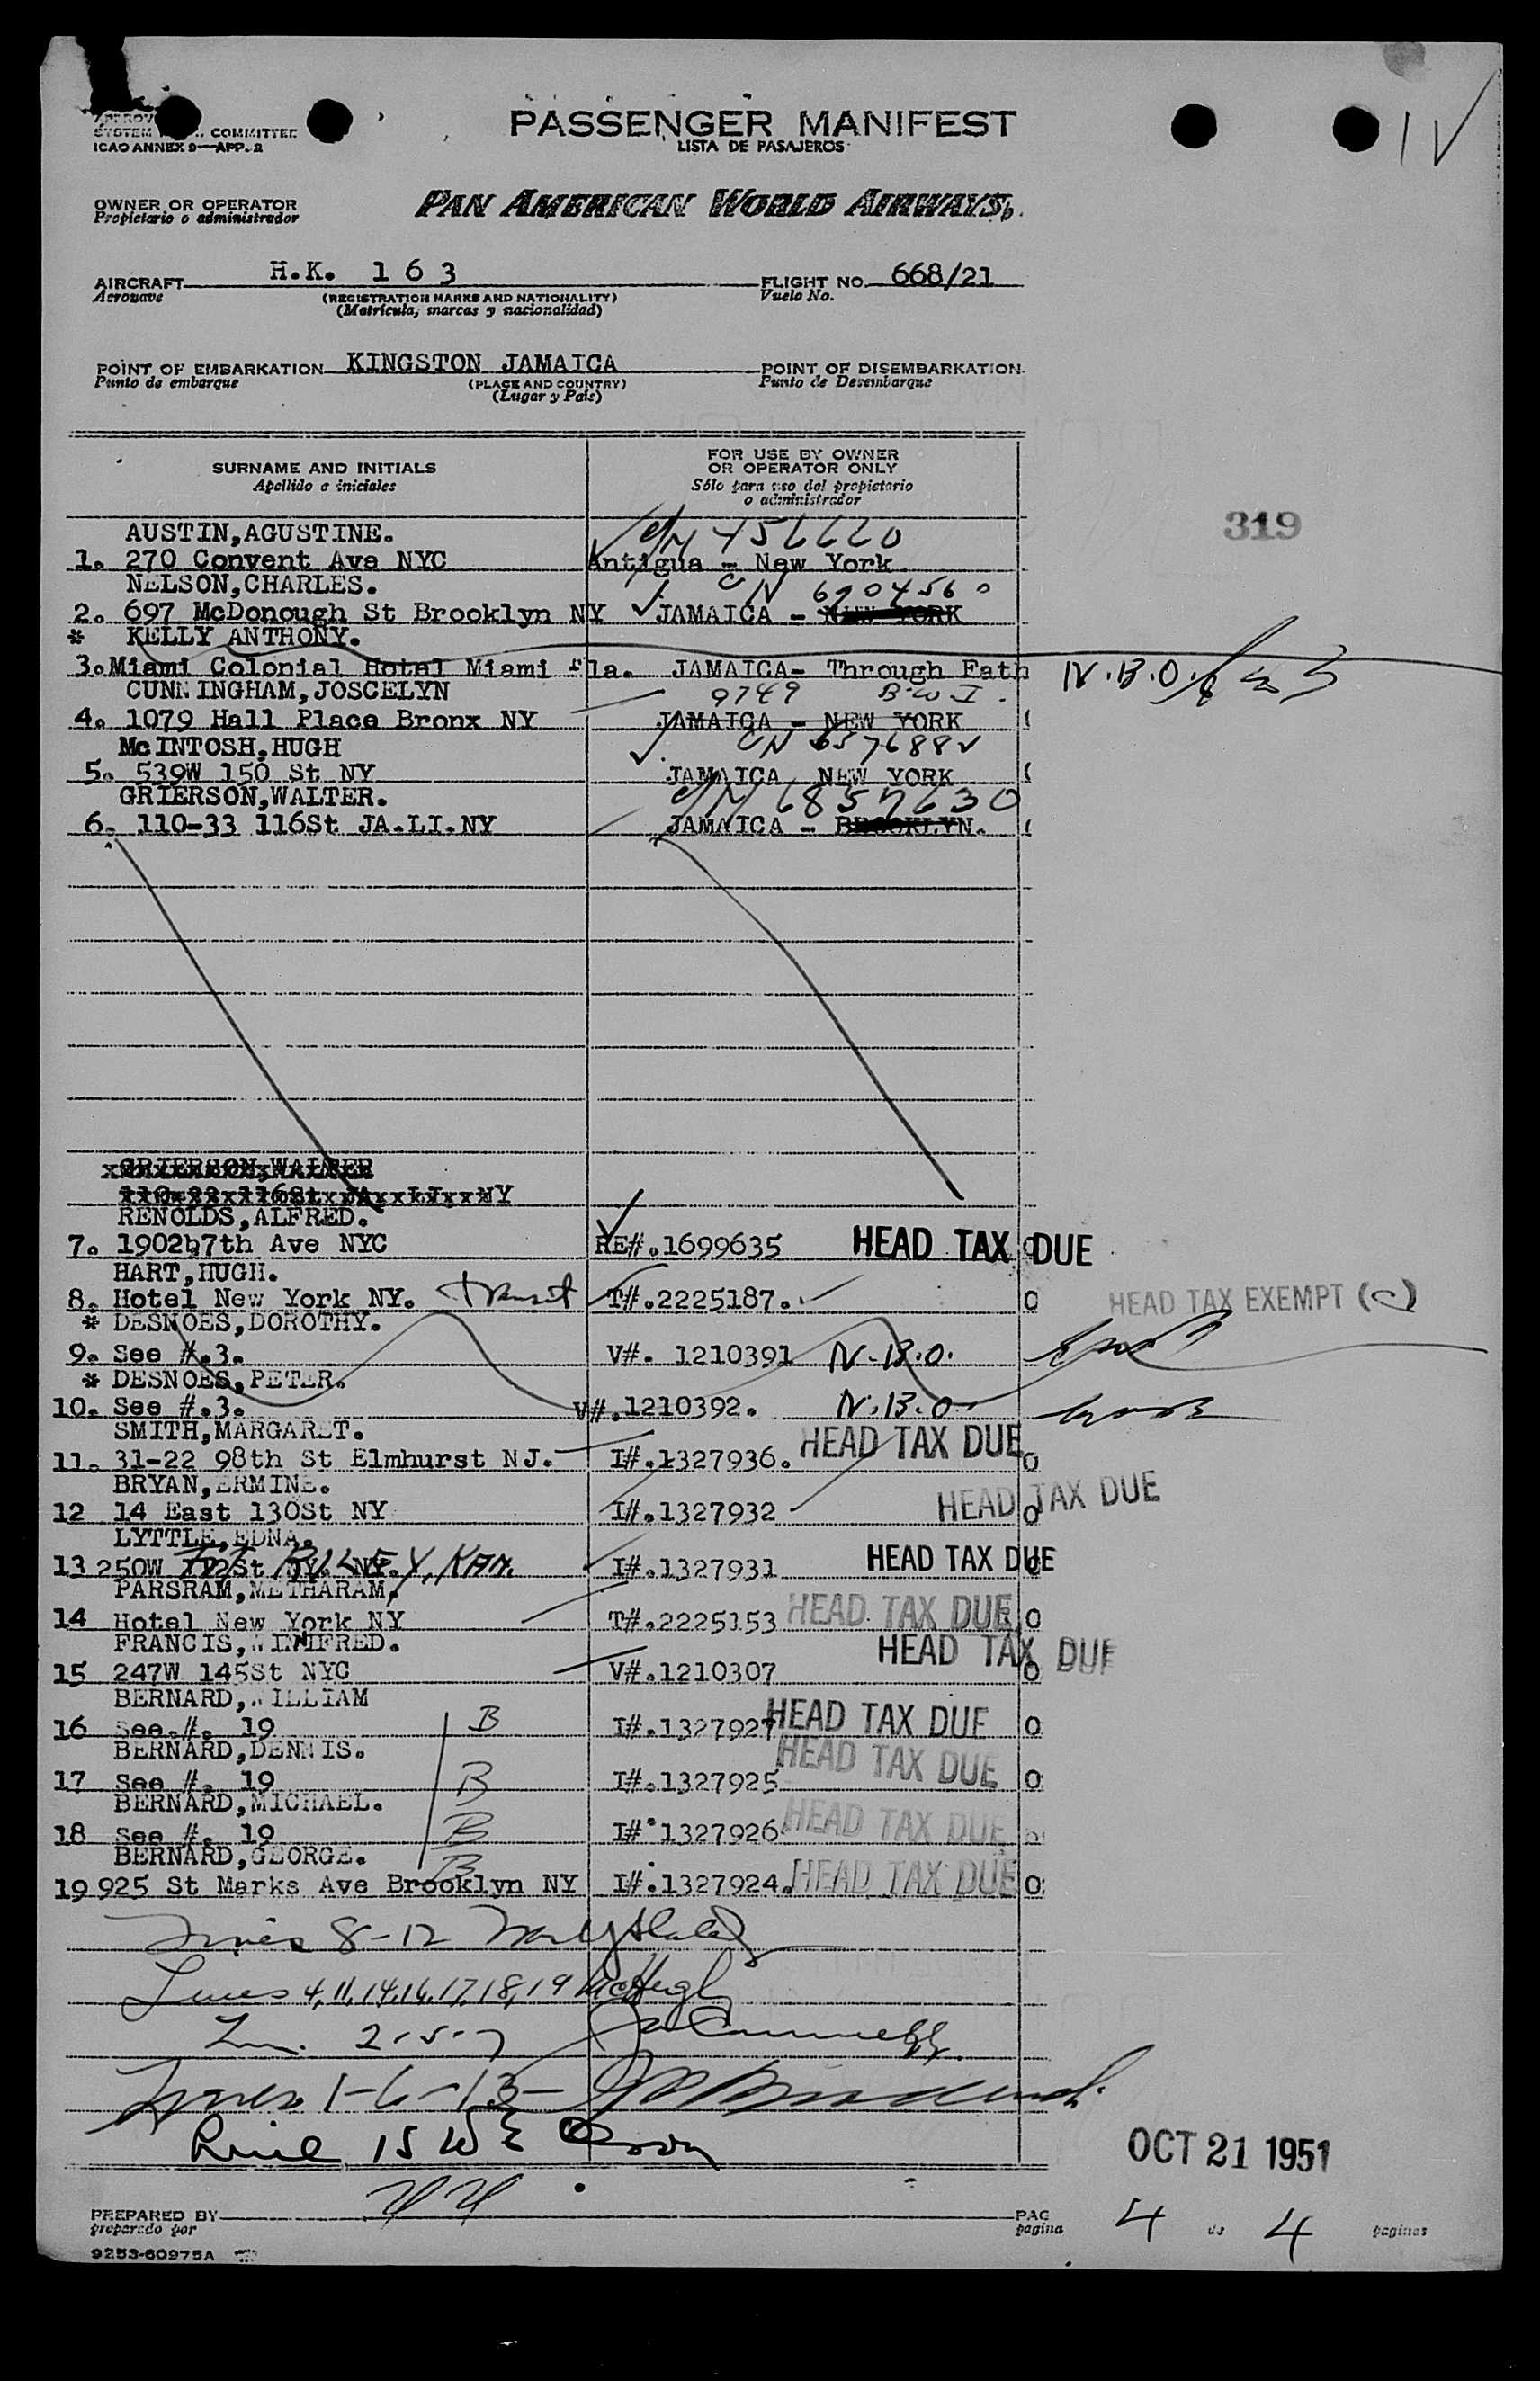 SYSTEM COMMITTEE
ICAO ANNEX 9—APP. 2
PASSENGER MANIFEST
LISTA DE PASAJEROS
IV
OWNER OR OPERATOR
Propietario o administrador
PAN AMERICAN WORLD AIRWAYS,
AIRCRAFT H.K. 1 6 3
Aeronave
(REGISTRATION MARKS AND NATIONALITY)
(Matrícula, marcas y nacionalidad)
FLIGHT NO. 668/21
Vuelo No.
POINT OF EMBARKATION KINGSTON JAMAICA
Punto de embarque
(PLACE AND COUNTRY)
(Lugar y País)
POINT OF DISEMBARKATION
Punto de Desembarque
SURNAME AND INITIALS
Apellido e iniciales
FOR USE BY OWNER
OR OPERATOR ONLY
Sólo para uso del propietario
o administrador
319
AUSTIN,AGUSTINE.
1. 270 Convent Ave NYC Antigua - New York
NELSON,CHARLES. CN 6904560
2. 697 McDonough St Brooklyn NY JAMAICA - NEW YORK
* KELLY ANTHONY.
3.Miami Colonial Hotel Miami Fla. JAMAICA- Through Fath N.B.O.
CUNNINGHAM,JOSCELYN 9749 B.W.I.
4. 1079 Hall Place Bronx NY JAMAICA - NEW YORK
McINTOSH,HUGH CN
5. 539W 150 St NY JAMAICA NEW YORK
GRIERSON,WALTER. C/N 6857630
6. 110-33 116St JA.LI.NY JAMAICA - BROOKLYN.
GRIERSON,WALTER
NY
RENOLDS,ALFRED.
7. 1902b7th Ave NYC RE#.1699635 HEAD TAX DUE
HART,HUGH.
8. Hotel New York NY. transit T#.2225187. HEAD TAX EXEMPT (C)
* DESNOES,DOROTHY.
9. See #.3. V#. 1210391 N.B.O.
* DESNOES,PETER.
10. See #.3. V#.1210392. N.B.O.
SMITH,MARGARET.
11. 31-22 98th St Elmhurst NJ. I#.1327936. HEAD TAX DUE
BRYAN,ERMINE.
12 14 East 130St NY I#.1327932 HEAD TAX DUE
LYTTLE,EDNA.
13 250W FT. RILEY, KAN. I#.1327931 HEAD TAX DUE
PARSRAM,METHARAM,
14 Hotel New York NY T#.2225153 HEAD TAX DUE
FRANCIS,WINNIFRED.
15 247W 145St NYC V#.1210307 HEAD TAX DUE
BERNARD,WILLIAM
16 See #. 19 B I#.1327927 HEAD TAX DUE
BERNARD,DENNIS.
17 See #. 19 B I#.1327925 HEAD TAX DUE
BERNARD,MICHAEL.
18 See #. 19 B I#.1327926 HEAD TAX DUE
BERNARD,GEORGE. B
19 925 St Marks Ave Brooklyn NY I#.1327924. HEAD TAX DUE
Lines 8-12
Lines 4,11,14,16,17,18,19 McHugh
2-5-7
Lines 1-6-13-
Line 15 W E Olson
OCT 21 1951
PREPARED BY
preparado por
PAG
página 4 de 4 paginas
9253-60975A